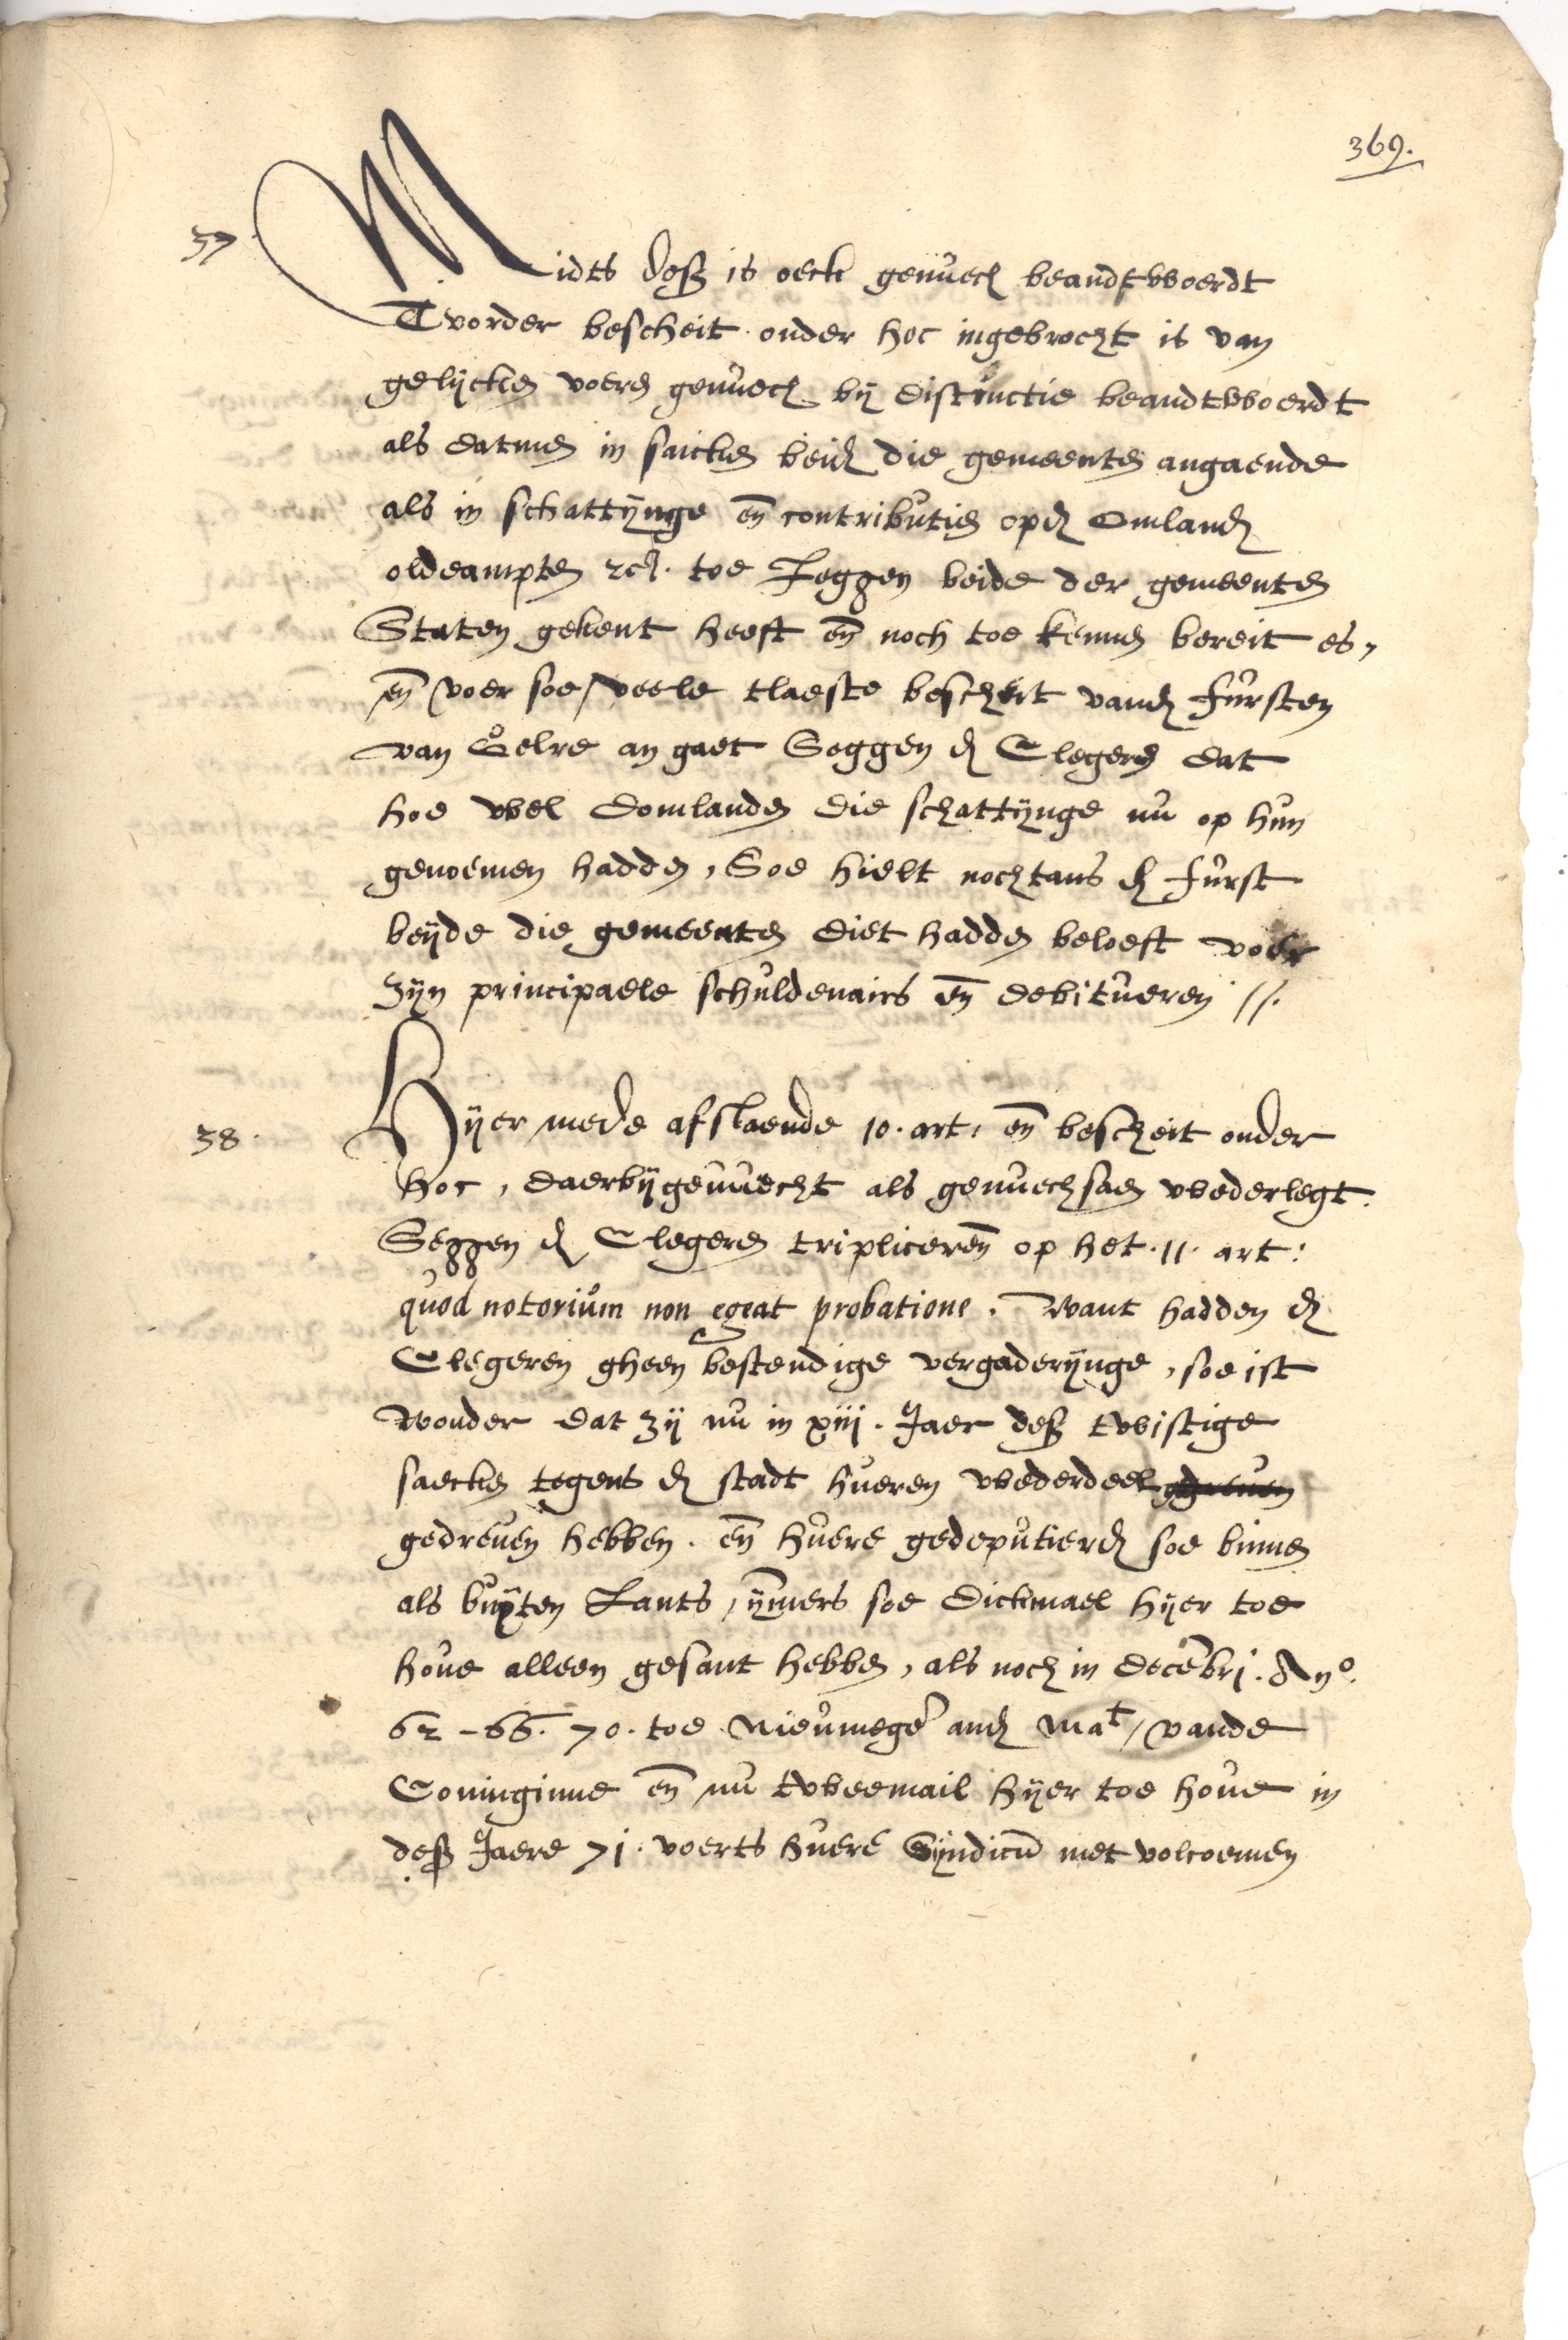 369.
37.
Midts desz is oeck genuech beandtwoerdt
Tvorder bescheit onder hoc ingebrocht is van
gelijcken voeren genuech bij distinctie beandtwoerdt
als datmen in saicken beid die gemeenten angaende
als in schattijnge en contributien opd Omland
oldeampten etc. toe Leggen beide der gemeenten
Staten gekent heeft en noch toe kennen bereit es,
en voer soe veele tlaeste bescheit vand fursten
van Gelre an gaet Seggen d Clegeren dat
hoe wel domlanden die schattijnge nu op hun
genoemen hadden, Soe hielt nochtans d furst
beijde die gemeenten diet hadden beloeft voer
zijn principaele schuldenairs en debitueren //.
38.
Hijer mede afslaende 10. art. en bescheit onder
hoc, daerbijgevuecht als genuechsaem wederlegt.
Seggen d Clegeren tripliceren op het .11. art:
quod notorium non egeat probatione. Want hadden d
Clegeren gheen bestendige vergaderijnge, soe ist
wonder dat zij nu in xiij. Jaer desz twistige
saecken tegens d stadt hueren wederdeel gedreuen
gedreuen hebben. en huere gedeputierd soe binnen
als buijten Lants, ijmmers soe dickmael hijer toe
houe alleen gesant hebben, als noch in Decembri. Ano.
62 - 66. 70. toe Nieumegen and Mat, vande
Coninginne en nu tweemail hijer toe houe in
desz Jaere 71. voerts huere Sijndicum met volcoemen